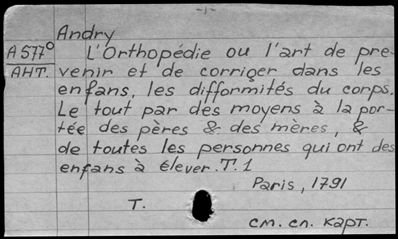 Andry
A 577°
АНТ.
L'Orthopédie ou l'art de pre-
venir et de corriger dans les
enfans, les difformités du corps.
Le tout par des moyens à la por-
tée des pères & des mères, &
de toutes les personnes qui ont des
enfans à élever. T. 1
Paris, 1791
T.
см. сл. карт.